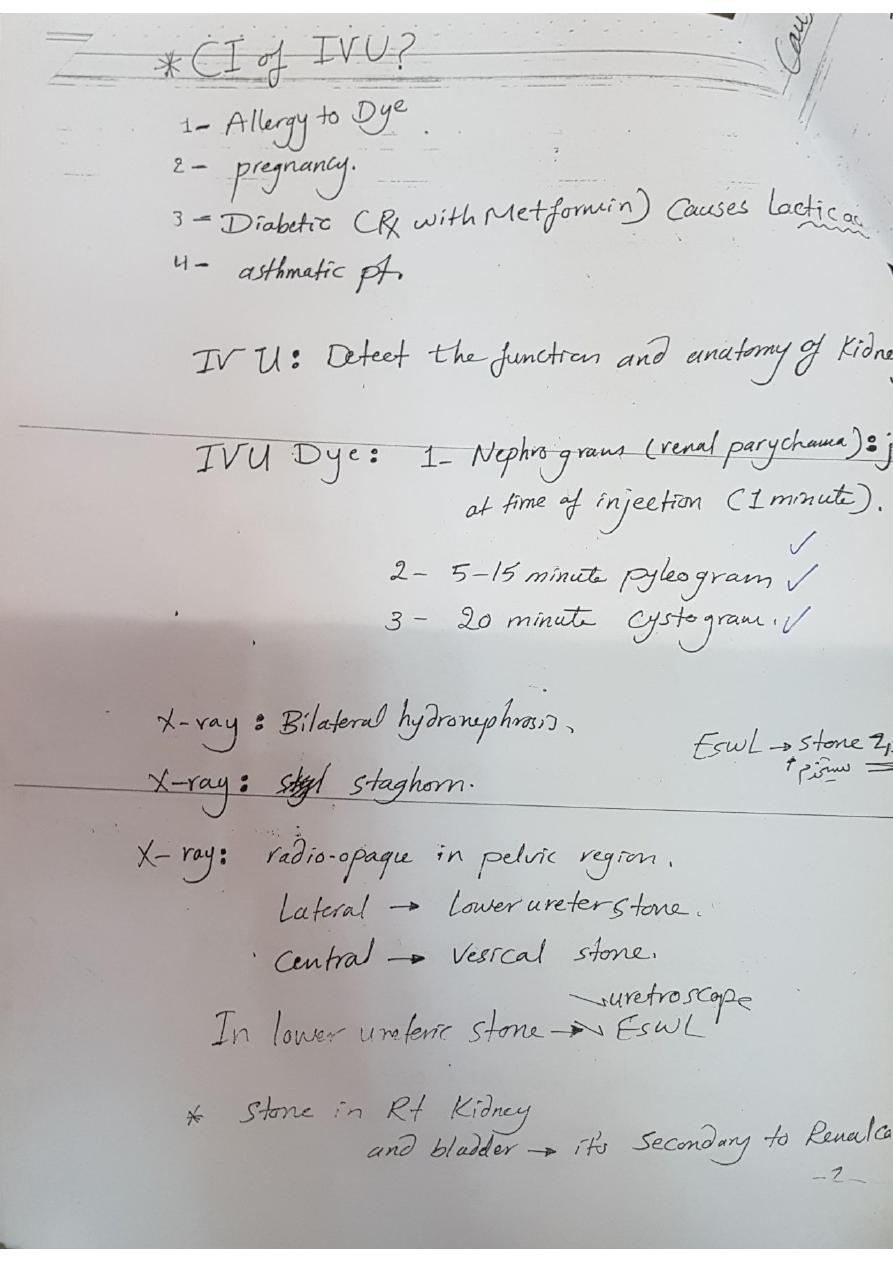 Cau
* CI of IVU?
1- Allergy to Dye.
2- pregnancy.
3- Diabetic (Rx with Metformin) Causes Lactic ac
4- asthmatic pt.
IVU: Detect the function and anatomy of Kidne
IVU Dye: 1- Nephrograms (renal parychama): j
at time of injection (1 minute).
2- 5-15 minute pyleogram ✓
3- 20 minute cystogram. ✓
X-ray: Bilateral hydronephrosis.
ESWL → stone 2,
X-ray: staghorn.
X-ray: radio-opaque in pelvic region.
Lateral → Lower ureter stone.
Central → Vesical stone.
uretroscope
In lower ureteric stone → ESWL
* Stone in Rt Kidney
and bladder → it's Secondary to Renal ca
-2-